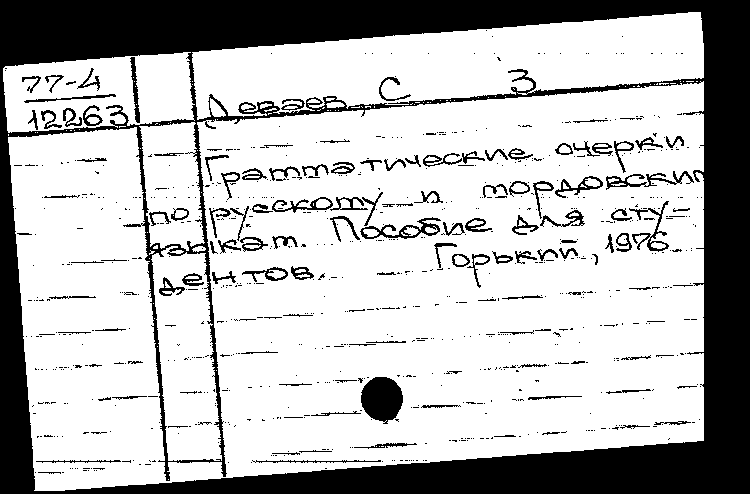 77-4
12263
Деваев, С З
Грамматические очерки
по русскому и мордовским
языкам. Пособие для сту-
дентов. Горький, 1976